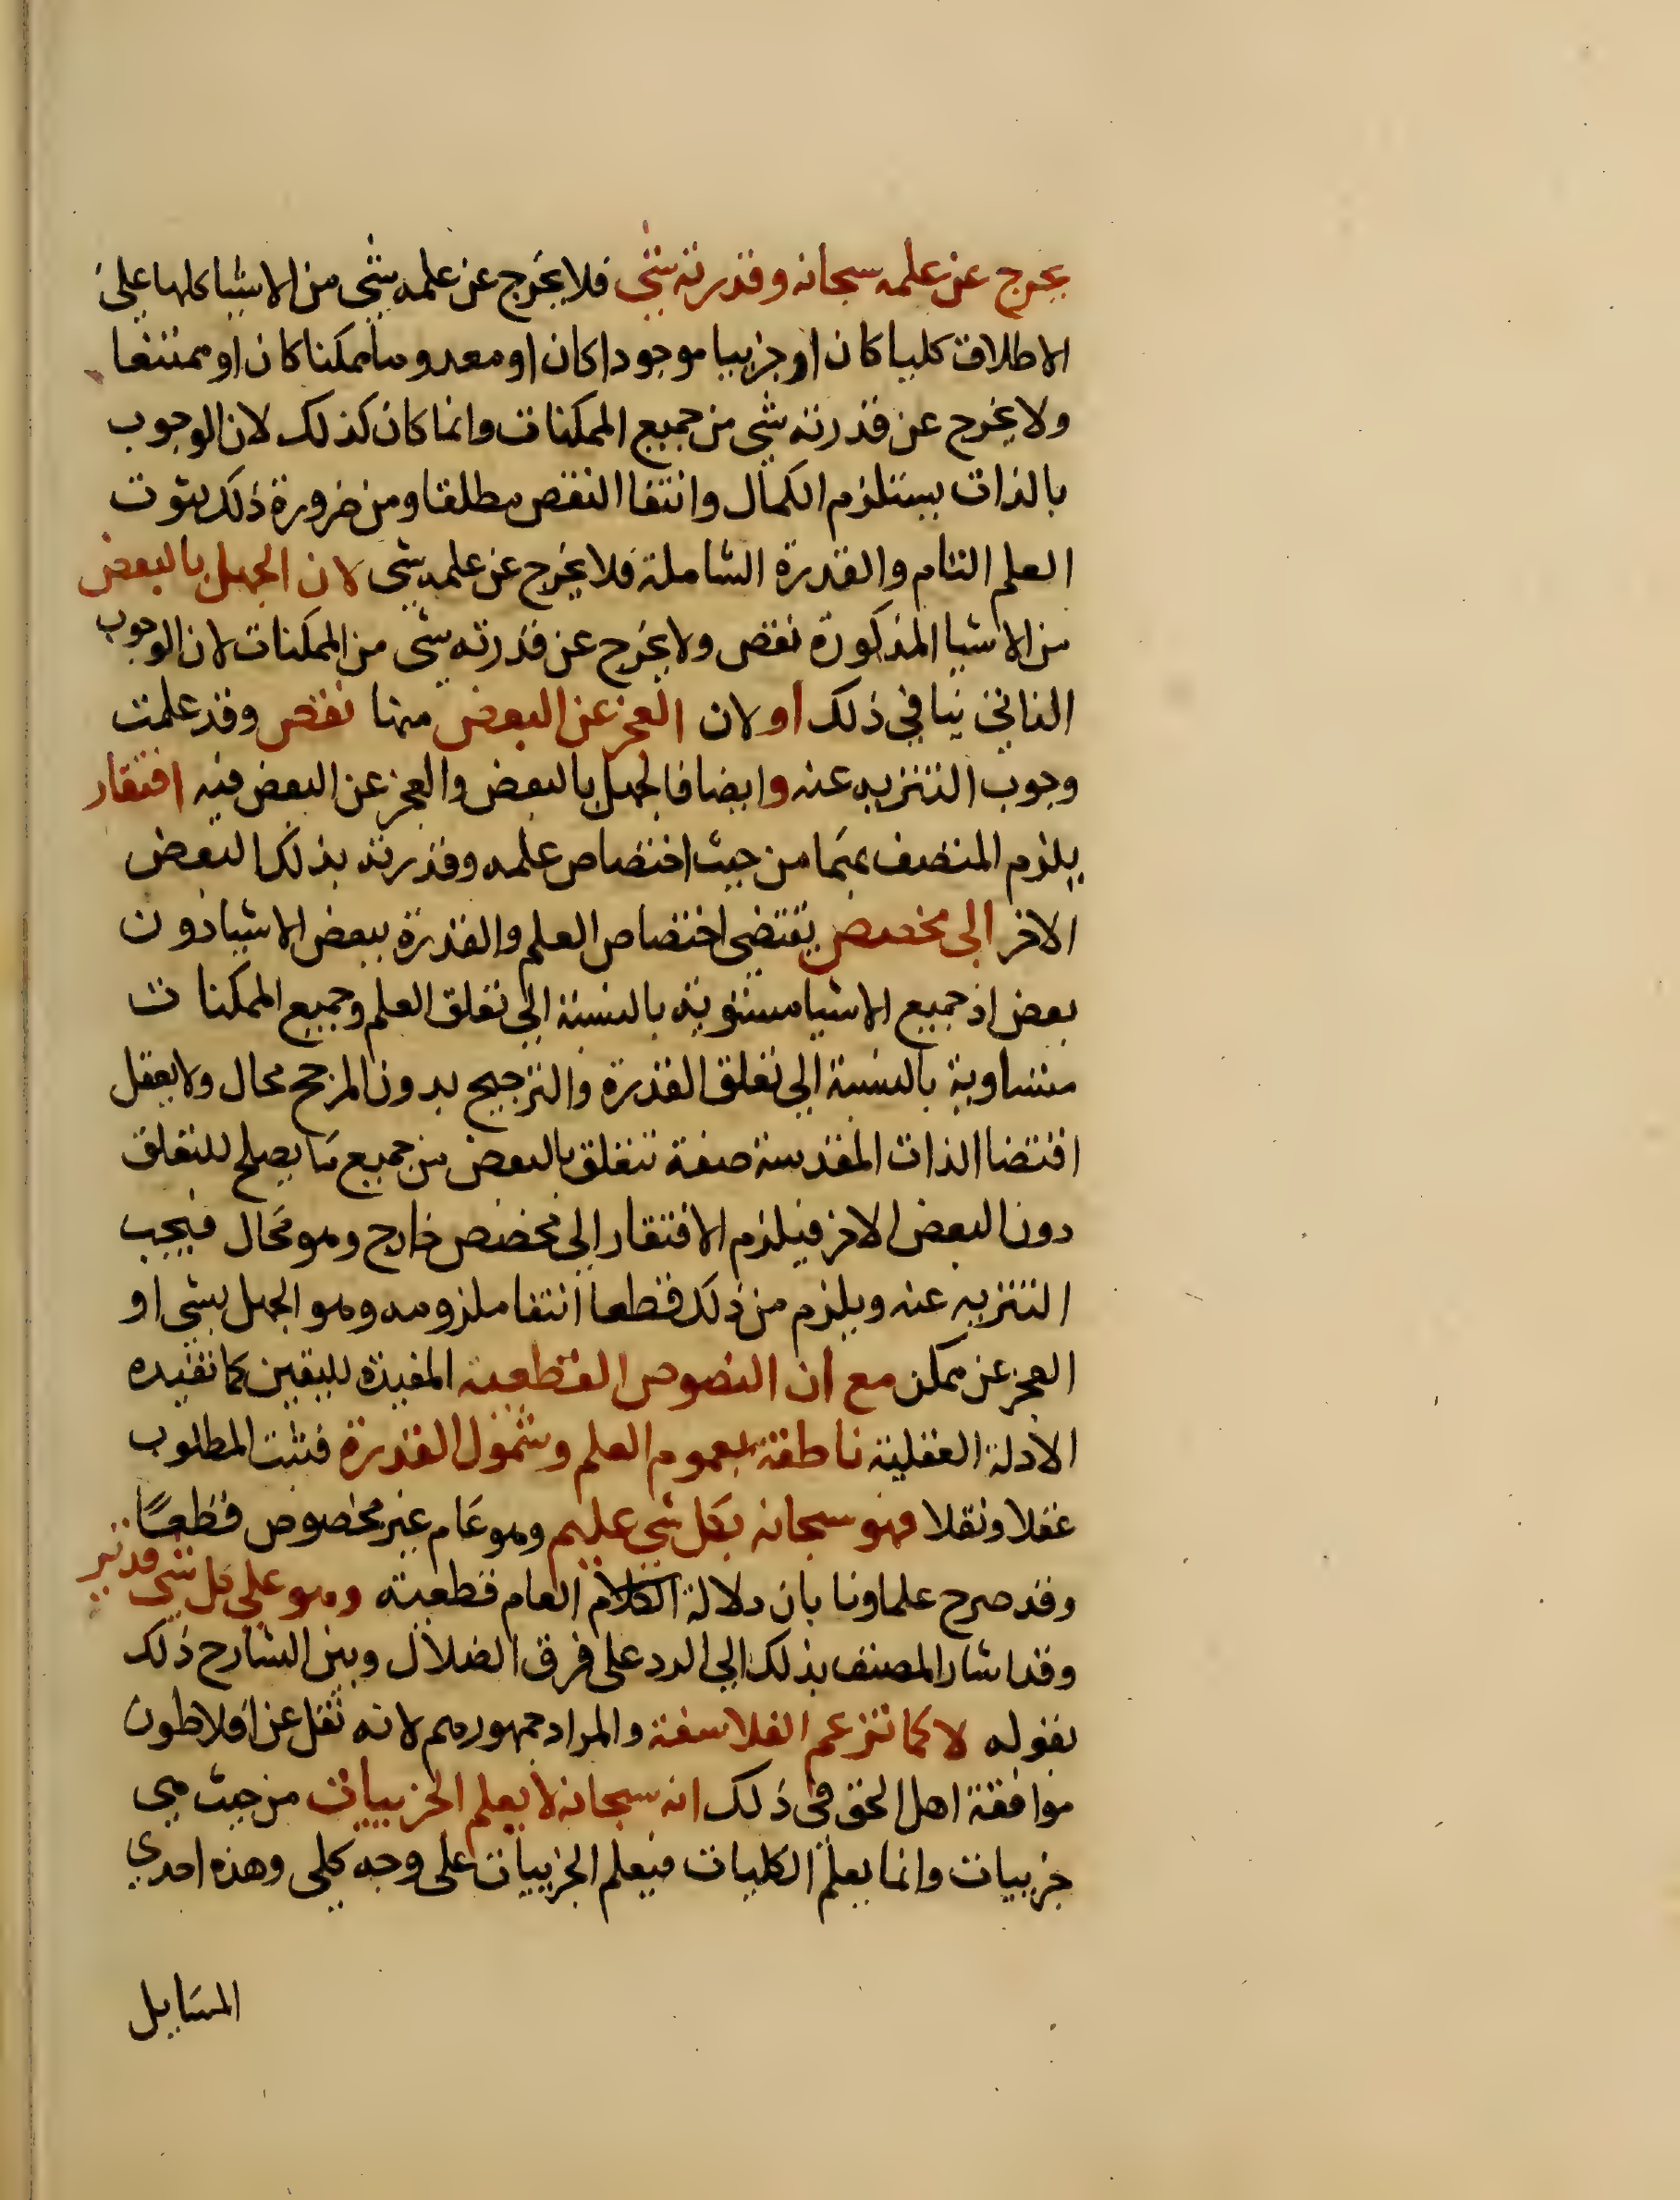 يخرج عن علمه سبحانه وقدرته شي فلا يخرج عن علمه شي من الاشيا كلها علي
الاطلاق كليا كان او جزييا موجودا كان او معدوما ممكنا كان او ممتنعا
ولا يخرج عن قدرته شي من جميع الممكنات وانما كان كذلك لان الوجوب
بالذات يستلزم الكمال وانتفا النقص مطلقا ومن ضرورة ذلك ثبوت
العلم التام والقدرة الشاملة فلا يخرج عن علمه شي لان الجهل بالبعض
من الاشيا المذكورة نقص ولا يخرج عن قدرته شي من الممكنات لان الوجوب
الذاتي ينافي ذلك او لان العجز عن البعض منها نقص وقد علمت
وجوب التنزيه عنه وايضا فالجهل بالبعض والعجز عن البعض فيه افتقار
يلزم المتصف بهما من حيث اختصاص علمه وقدرته بذلك البعض
الاخر الى مخصص يقتضي اختصاص العلم والقدرة ببعض الاشيا دون
بعض اذ جميع الاشيا مستوية بالنسبة الي تعلق العلم وجميع الممكنات
متساوية بالنسبة الي تعلق القدرة والترجيح بدون المرجح محال ولا يعقل
اقتضا الذات المقدسة صفة تتعلق بالبعض من جميع ما يصلح للتعلق
دون البعض الاخر فيلزم الافتقار الي مخصص خارج وهو محال فيجب
التنزيه عنه ويلزم من ذلك قطعا انتفا ملزومه وهو الجهل بشي او
العجز عن ممكن مع ان النصوص القطعية المفيدة لليقين كما تفيده
الادلة العقلية ناطقة بعموم العلم وشمول القدرة فثبت المطلوب
عقلا ونقلا فهو سبحانه بكل شي عليم وهو عام غير مخصوص قطعًا
وقد صرح علماونا بان دلالة الكلام العام قطعية وهو على كل شي قدير
وقد اشار المصنف بذلك الي الرد على فرق الضلال وبين الشارح ذلك
بقوله لا كما تزعم الفلاسفة والمراد جمهورهم لانه نقل عن افلاطون
موافقة اهل الحق في ذلك انه سبحانه لا يعلم الجزييات من حيث هي
جزييات وانما يعلم الكليات فيعلم الجزييات على وجه كلي وهذه احدي
المسايل